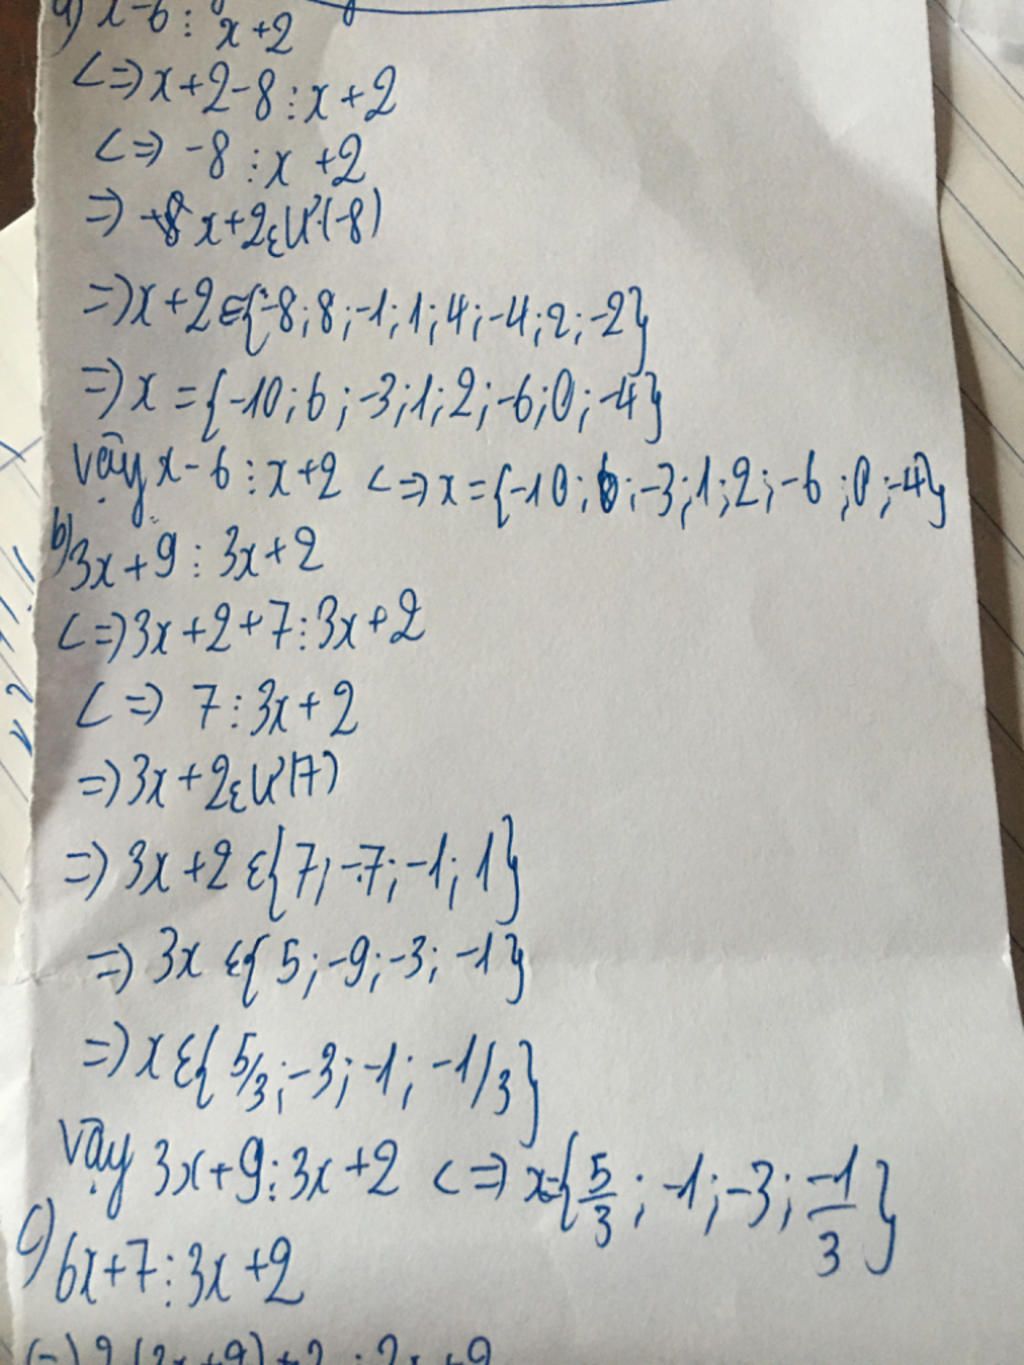 a) x-6 ⋮ x+2
<=> x+2-8 ⋮ x+2
<=> -8 ⋮ x+2
=> x+2 ε Ư(-8)
=> x+2 ε {-8; 8; -1; 1; 4; -4; 2; -2}
=> x = {-10; 6; -3; 1; 2; -6; 0; -4}
Vậy x-6 ⋮ x+2 <=> x = {-10; 6; -3; 1; 2; -6; 0; -4}
b) 3x+9 ⋮ 3x+2
<=> 3x+2+7 ⋮ 3x+2
<=> 7 ⋮ 3x+2
=> 3x+2 ε Ư(7)
=> 3x+2 ε {7; -7; -1; 1}
=> 3x ε {5; -9; -3; -1}
=> x ε {5/3; -3; -1; -1/3}
Vậy 3x+9 ⋮ 3x+2 <=> x = {5/3; -1; -3; -1/3}
c) 6x+7 ⋮ 3x+2